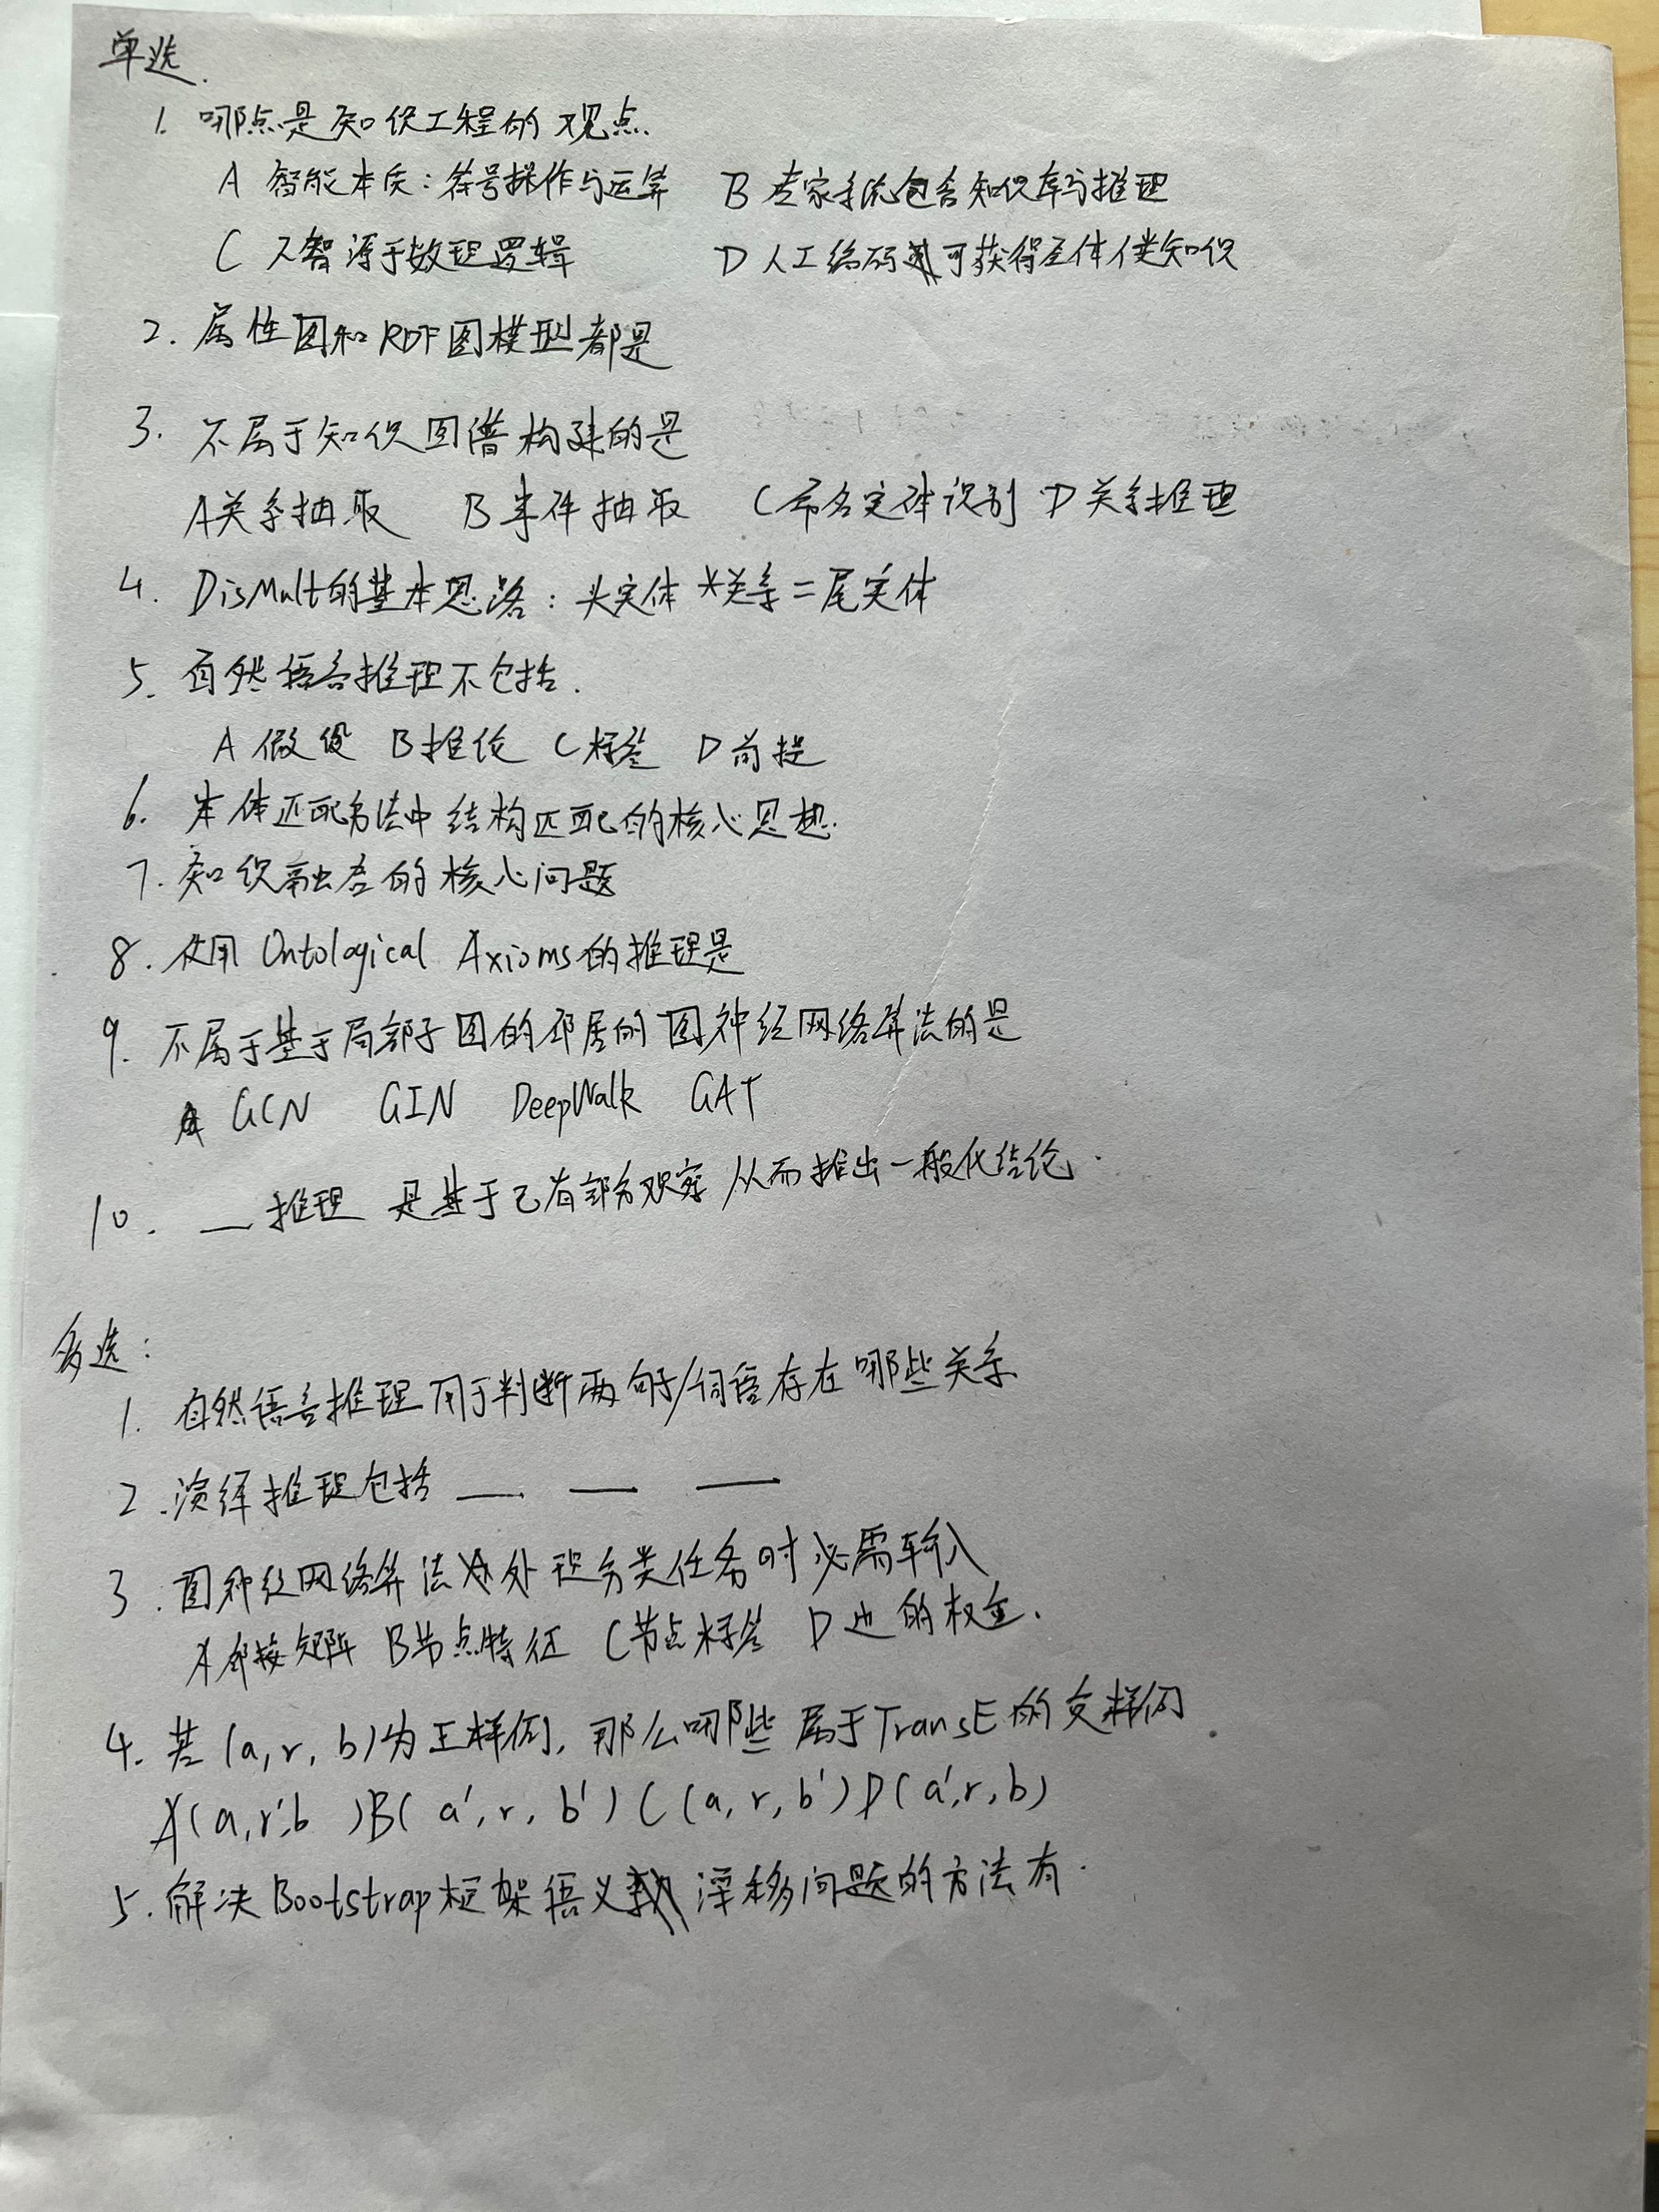 单选.
1. 哪点是知识工程的观点
A 智能本质：符号操作与运算 B 专家系统包含知识库与推理
C 人智源于数理逻辑 D 人工编码可获得全体人类知识
2. 属性图和RDF图模型都是
3. 不属于知识图谱构建的是
A关系抽取 B事件抽取 C命名实体识别 D关系推理
4. DisMult的基本思路：头实体*关系=尾实体
5. 自然语言推理不包括.
A 假设 B推论 C标签 D前提
6. 本体匹配方法中结构匹配的核心思想.
7. 知识融合的核心问题
8. 使用 Ontological Axioms的推理是
9. 不属于基于局部子图的邻居的图神经网络算法的是
A GCN GIN DeepWalk GAT
10. __推理 是基于已有部分观察从而推出一般化结论.
多选：
1. 自然语言推理用于判断两句子/词语存在哪些关系
2. 演绎推理包括 __. __ __
3. 图神经网络算法处理分类任务时必需输入
A邻接矩阵 B节点特征 C节点标签 D边的权重.
4. 若(a, r, b)为正样例，那么哪些属于TransE的负样例
A(a,r',b )B( a', r, b')C(a, r, b')D(a',r, b)
5. 解决Bootstrap框架语义漂移问题的方法有.